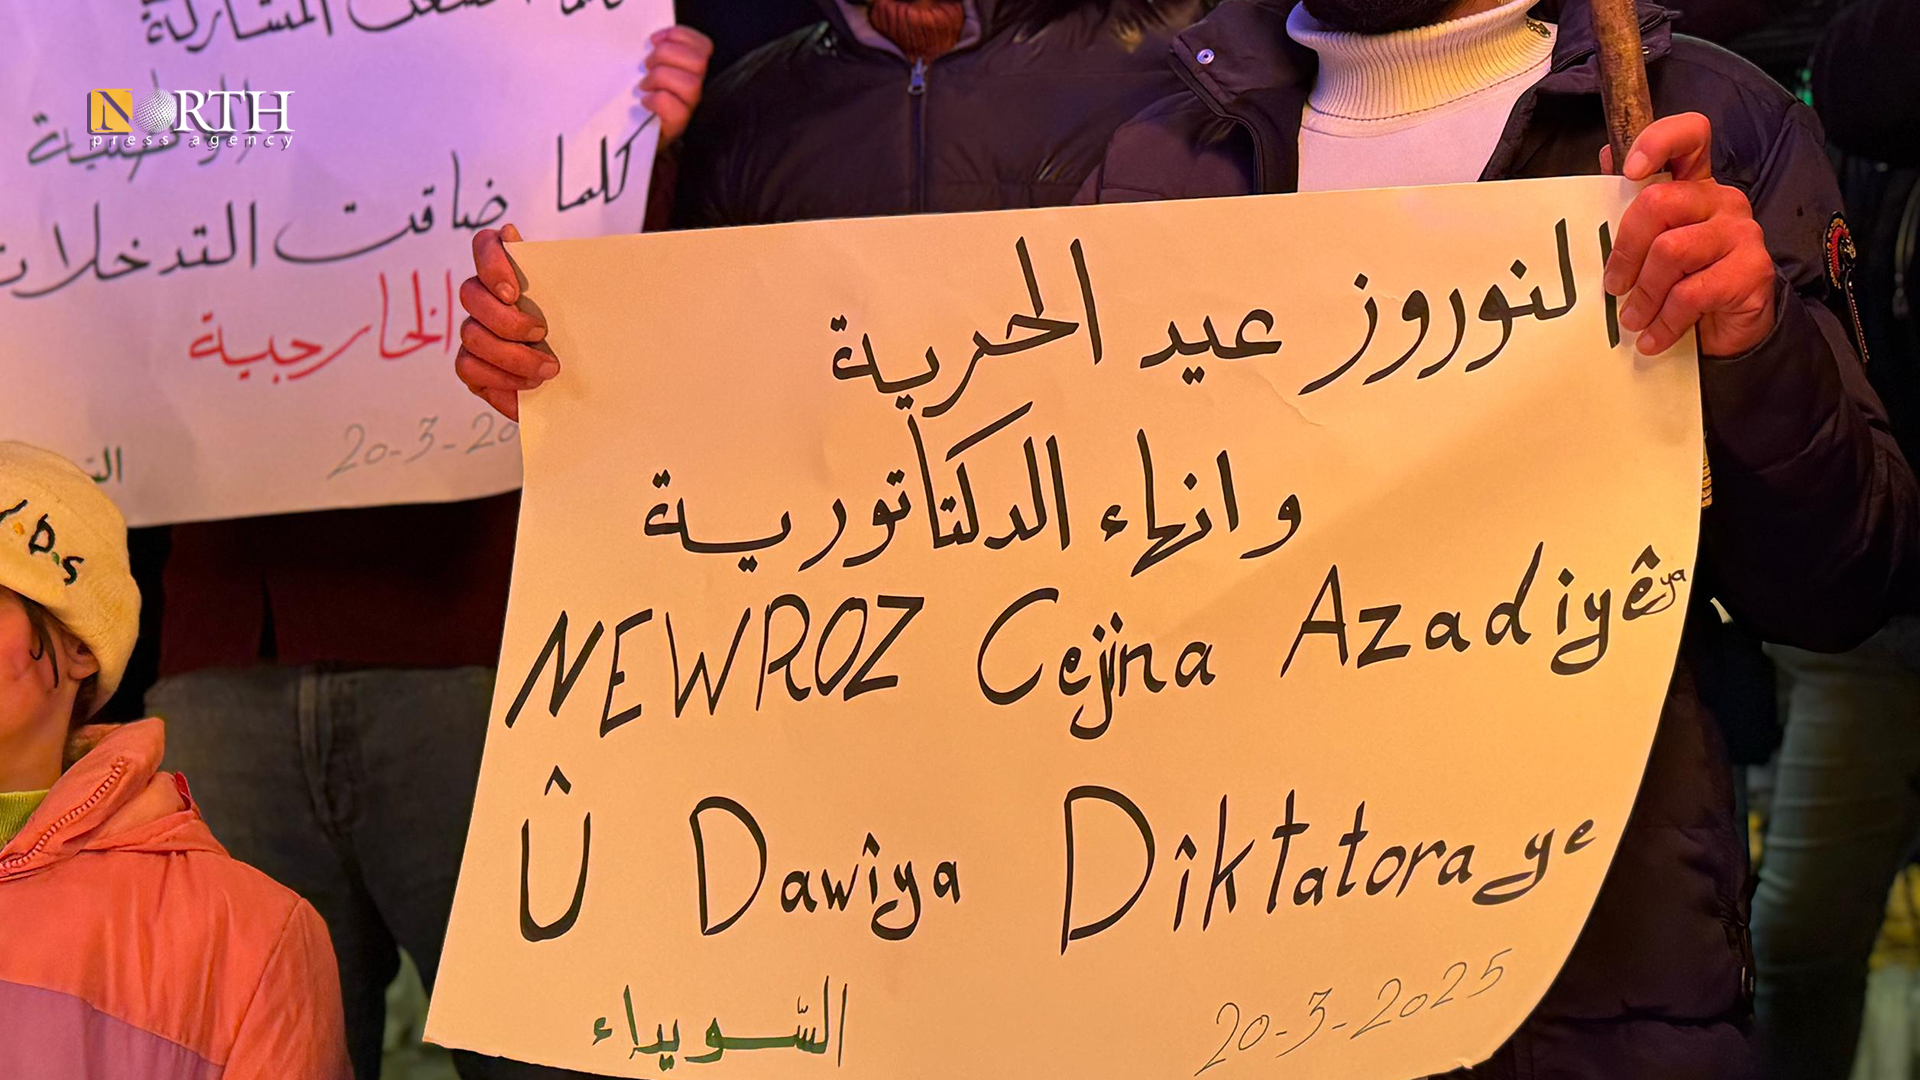 NORTH
press agency
المشاركة
الوطنية
كلما ضاقت التدخلات
الخارجية
20-3-20
النوروز عيد الحرية
وانهاء الدكتاتورية
NEWROZ Cejna Azadiyêya
Û Dawîya Dîktatoraye
السّويداء
20-3-2025